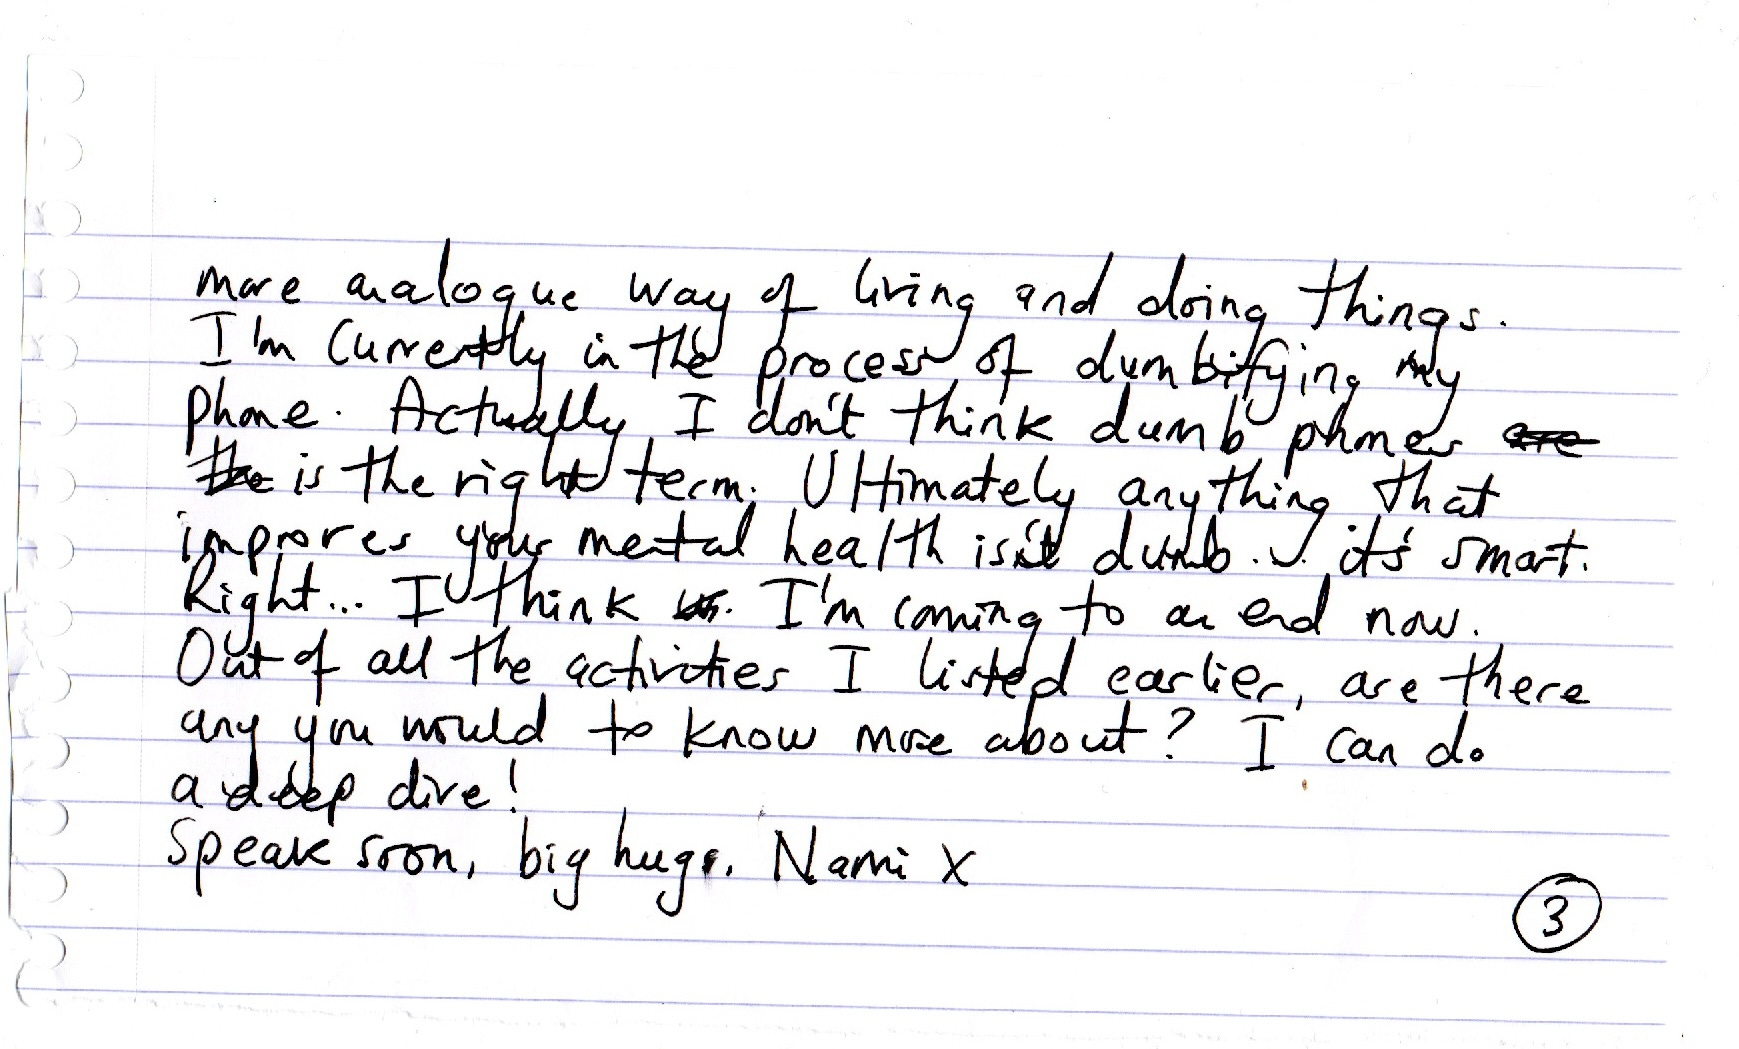 more analogue way of living and doing things.
I'm currently in the process of dumbifying my
phone. Actually I don't think dumb phones are
the is the right term. Ultimately anything that
improves your mental health isn't dumb... it's smart.
Right... I think I'm coming to an end now.
Out of all the activities I listed earlier, are there
any you would to know more about? I can do
a deep dive!
Speak soon, big hugs. Nami X
3